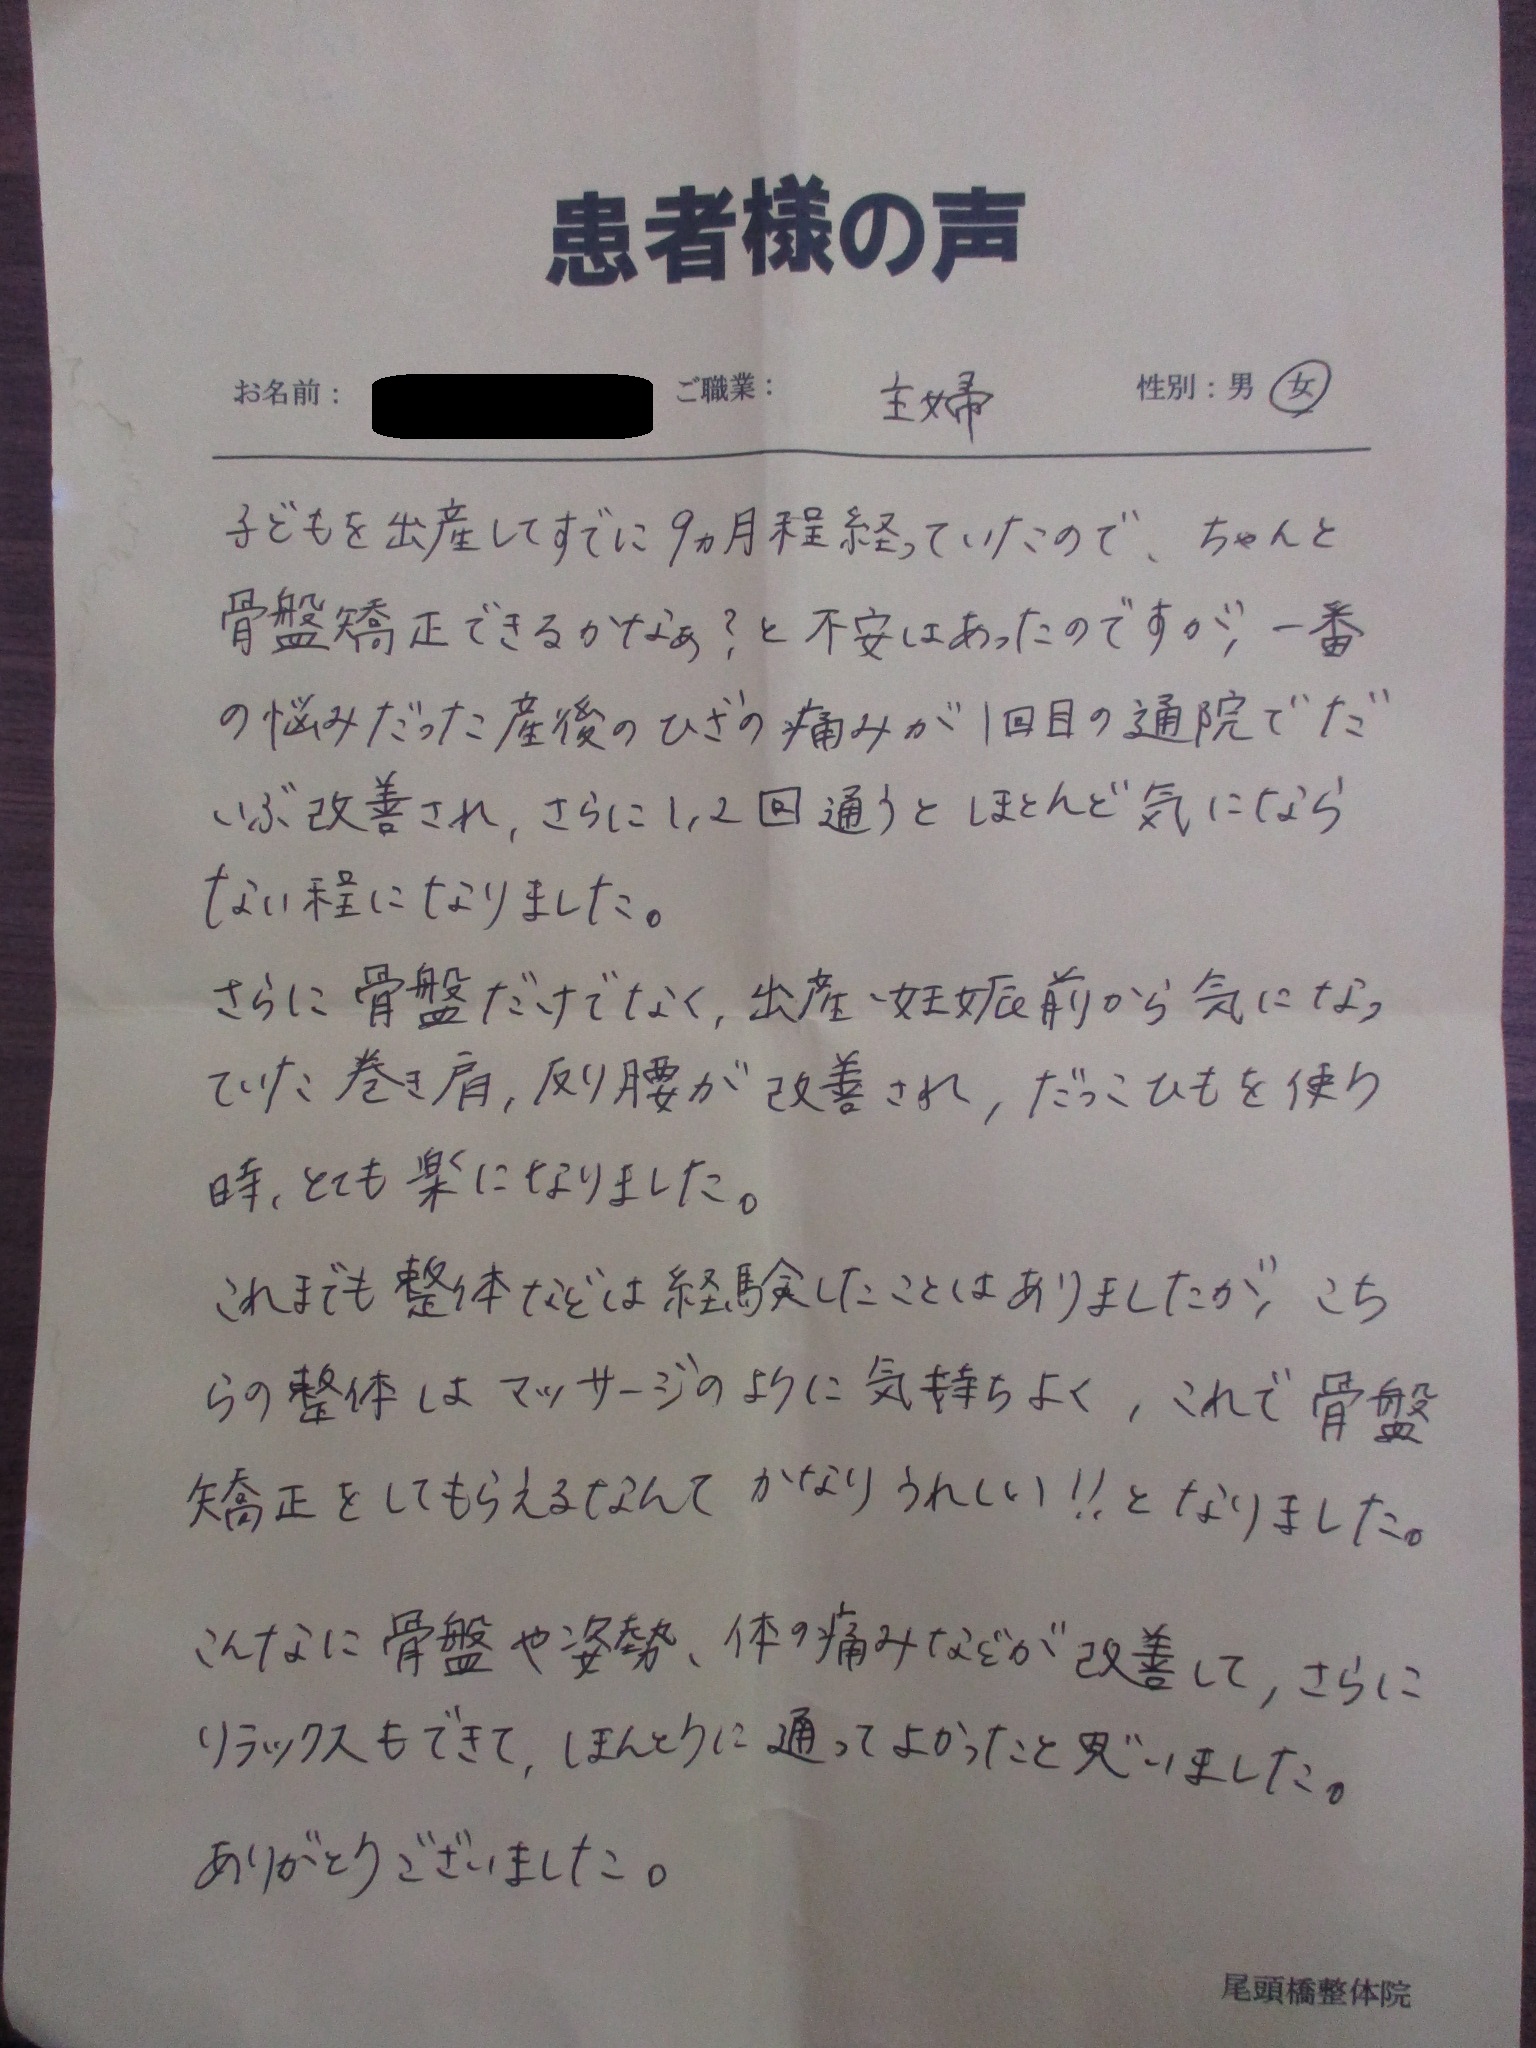 患者様の声
お名前: ご職業: 主婦 性別:男 女
子どもを出産してすでに9ヵ月程経っていたので、ちゃんと
骨盤矯正できるかなぁ?と不安はあったのですが、一番
の悩みだった産後のひざの痛みが1回目の通院でだ
いぶ改善され、さらに1,2回通うとほとんど気になら
ない程になりました。
さらに骨盤だけでなく、出産・妊娠前から気になっ
ていた巻き肩、反り腰が改善され、だっこひもを使う
時、とても楽になりました。
これまでも整体などは経験したことはありましたが、こち
らの整体はマッサージのように気持ちよく、これで骨盤
矯正をしてもらえるなんてかなりうれしい!!となりました。
こんなに骨盤や姿勢、体の痛みなどが改善して、さらに
リラックスもできて、ほんとうに通ってよかったと思いました。
ありがとうございました。
尾頭橋整体院